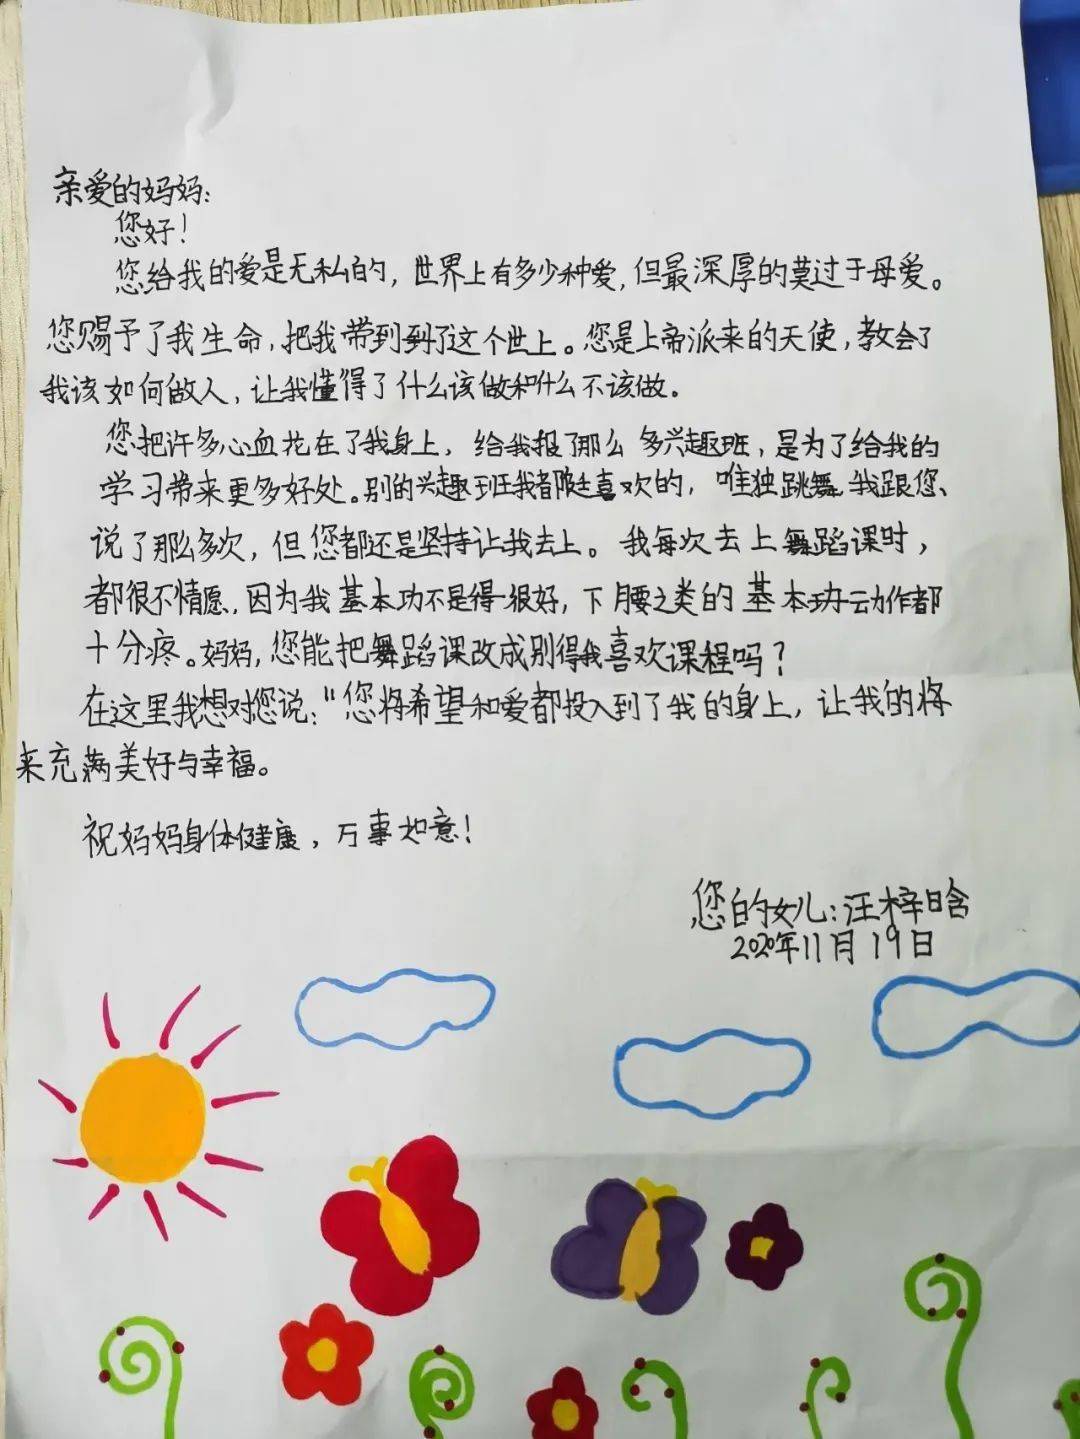 亲爱的妈妈：
您好！
您给我的爱是无私的，世界上有多少种爱，但最深厚的莫过于母爱。
您赐予了我生命，把我带到到了这个世上。您是上帝派来的天使，教会了
我该如何做人，让我懂得了什么该做和什么不该做。
您把许多心血花在了我身上，给我报了那么多兴趣班，是为了给我的
学习带来更多好处。别的兴趣班我都挺喜欢的，唯独跳舞我跟您、
说了那么多次，但您都还是坚持让我去上。我每次去上舞蹈课时，
都很不情愿，因为我基本功不是得很好，下腰之类的基本功动作都
十分疼。妈妈，您能把舞蹈课改成别得我喜欢课程吗？
在这里我想对您说：“您将希望和爱都投入到了我的身上，让我的将
来充满美好与幸福。
祝妈妈身体健康，万事如意！
您的女儿：汪梓晗
2020年11月19日